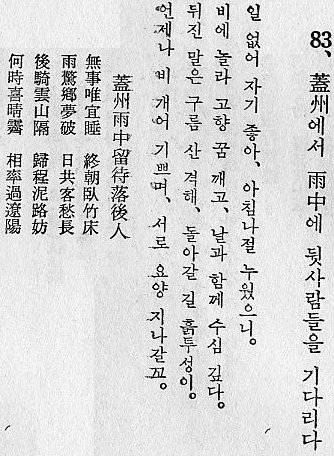 83、蓋州에서 雨中에 뒷사람들을 기다리다
일 없어 자기 좋아, 아침나절 누웠으니。
비에 놀라 고향 꿈 깨고, 날과 함께 수심 깊다。
뒤진 말은 구름 산 격해, 돌아갈 길 흙투성이。
언제나 비 개어 기쁘며, 서로 요양 지나갈꼬。
蓋州雨中留待落後人
無事唯宜睡 終朝臥竹床
雨驚鄕夢破 日共客愁長
後騎雲山隔 歸程泥路妨
何時喜晴霽 相率過遼陽